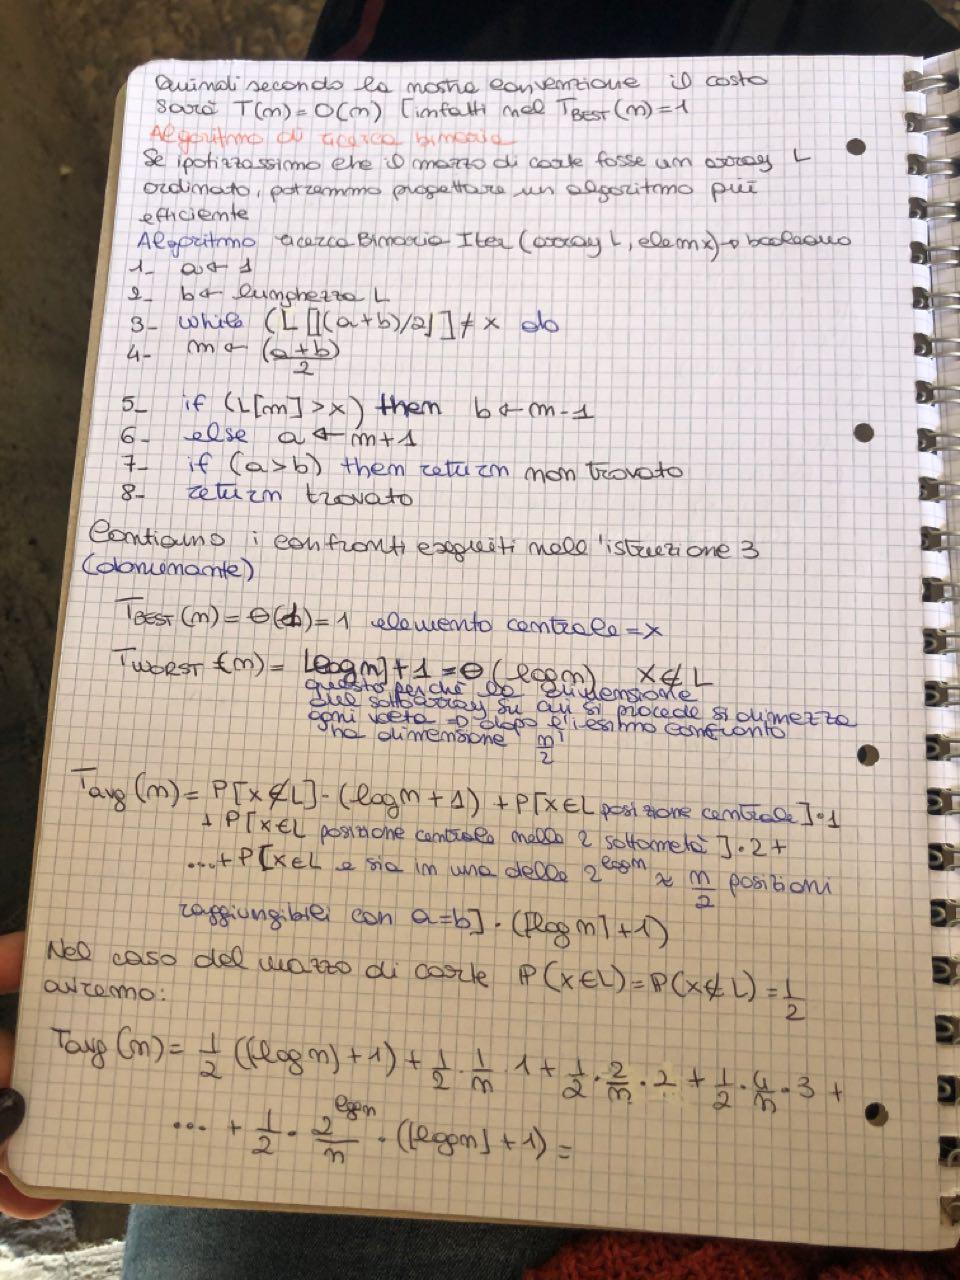 Quindi secondo la nostra convenzione il costo
sarà T(n) = O(n) [infatti nel T_BEST(n) = 1
Algoritmo di ricerca binaria
Se ipotizzassimo che il mazzo di carte fosse un array L
ordinato, potremmo progettare un algoritmo più
efficiente
Algoritmo ricerca Binaria Iter (array L, elem x) → booleano
1- a ← 1
2- b ← lunghezza L
3- while (L [⌊(a+b)/2⌋] ≠ x do
4- m ← (a+b)/2
5- if (L[m] > x) then b ← m-1
6- else a ← m+1
7- if (a>b) then return non trovato
8- return trovato
Contiamo i confronti eseguiti nell'istruzione 3
(dominante)
T_BEST(n) = Θ(1) = 1 elemento centrale = x
T_WORST(n) = ⌊log n⌋ + 1 = Θ(log n) x ∉ L
questo perchè la dimensione
del sottoarray su cui si procede si dimezza
ogni volta → dopo l'i-esimo confronto
ha dimensione n/2^i
Tavg (n) = P[x ∉ L] · (log n + 1) + P[x ∈ L posizione centrale] · 1
+ P[x ∈ L posizione centrale nelle 2 sottometà] · 2 +
...+ P[x ∈ L e sia in una delle 2^log n ≈ n/2 posizioni
raggiungibili con a = b] · (⌊log n⌋ + 1)
Nel caso del mazzo di carte P(x ∈ L) = P(x ∉ L) = 1/2
avremo:
Tavg (n) = 1/2 (⌊log n⌋ + 1) + 1/2 · 1/n · 1 + 1/2 · 2/n · 2 + 1/2 · 4/n · 3 +
... + 1/2 · 2^log n/n · (⌊log n⌋ + 1) =